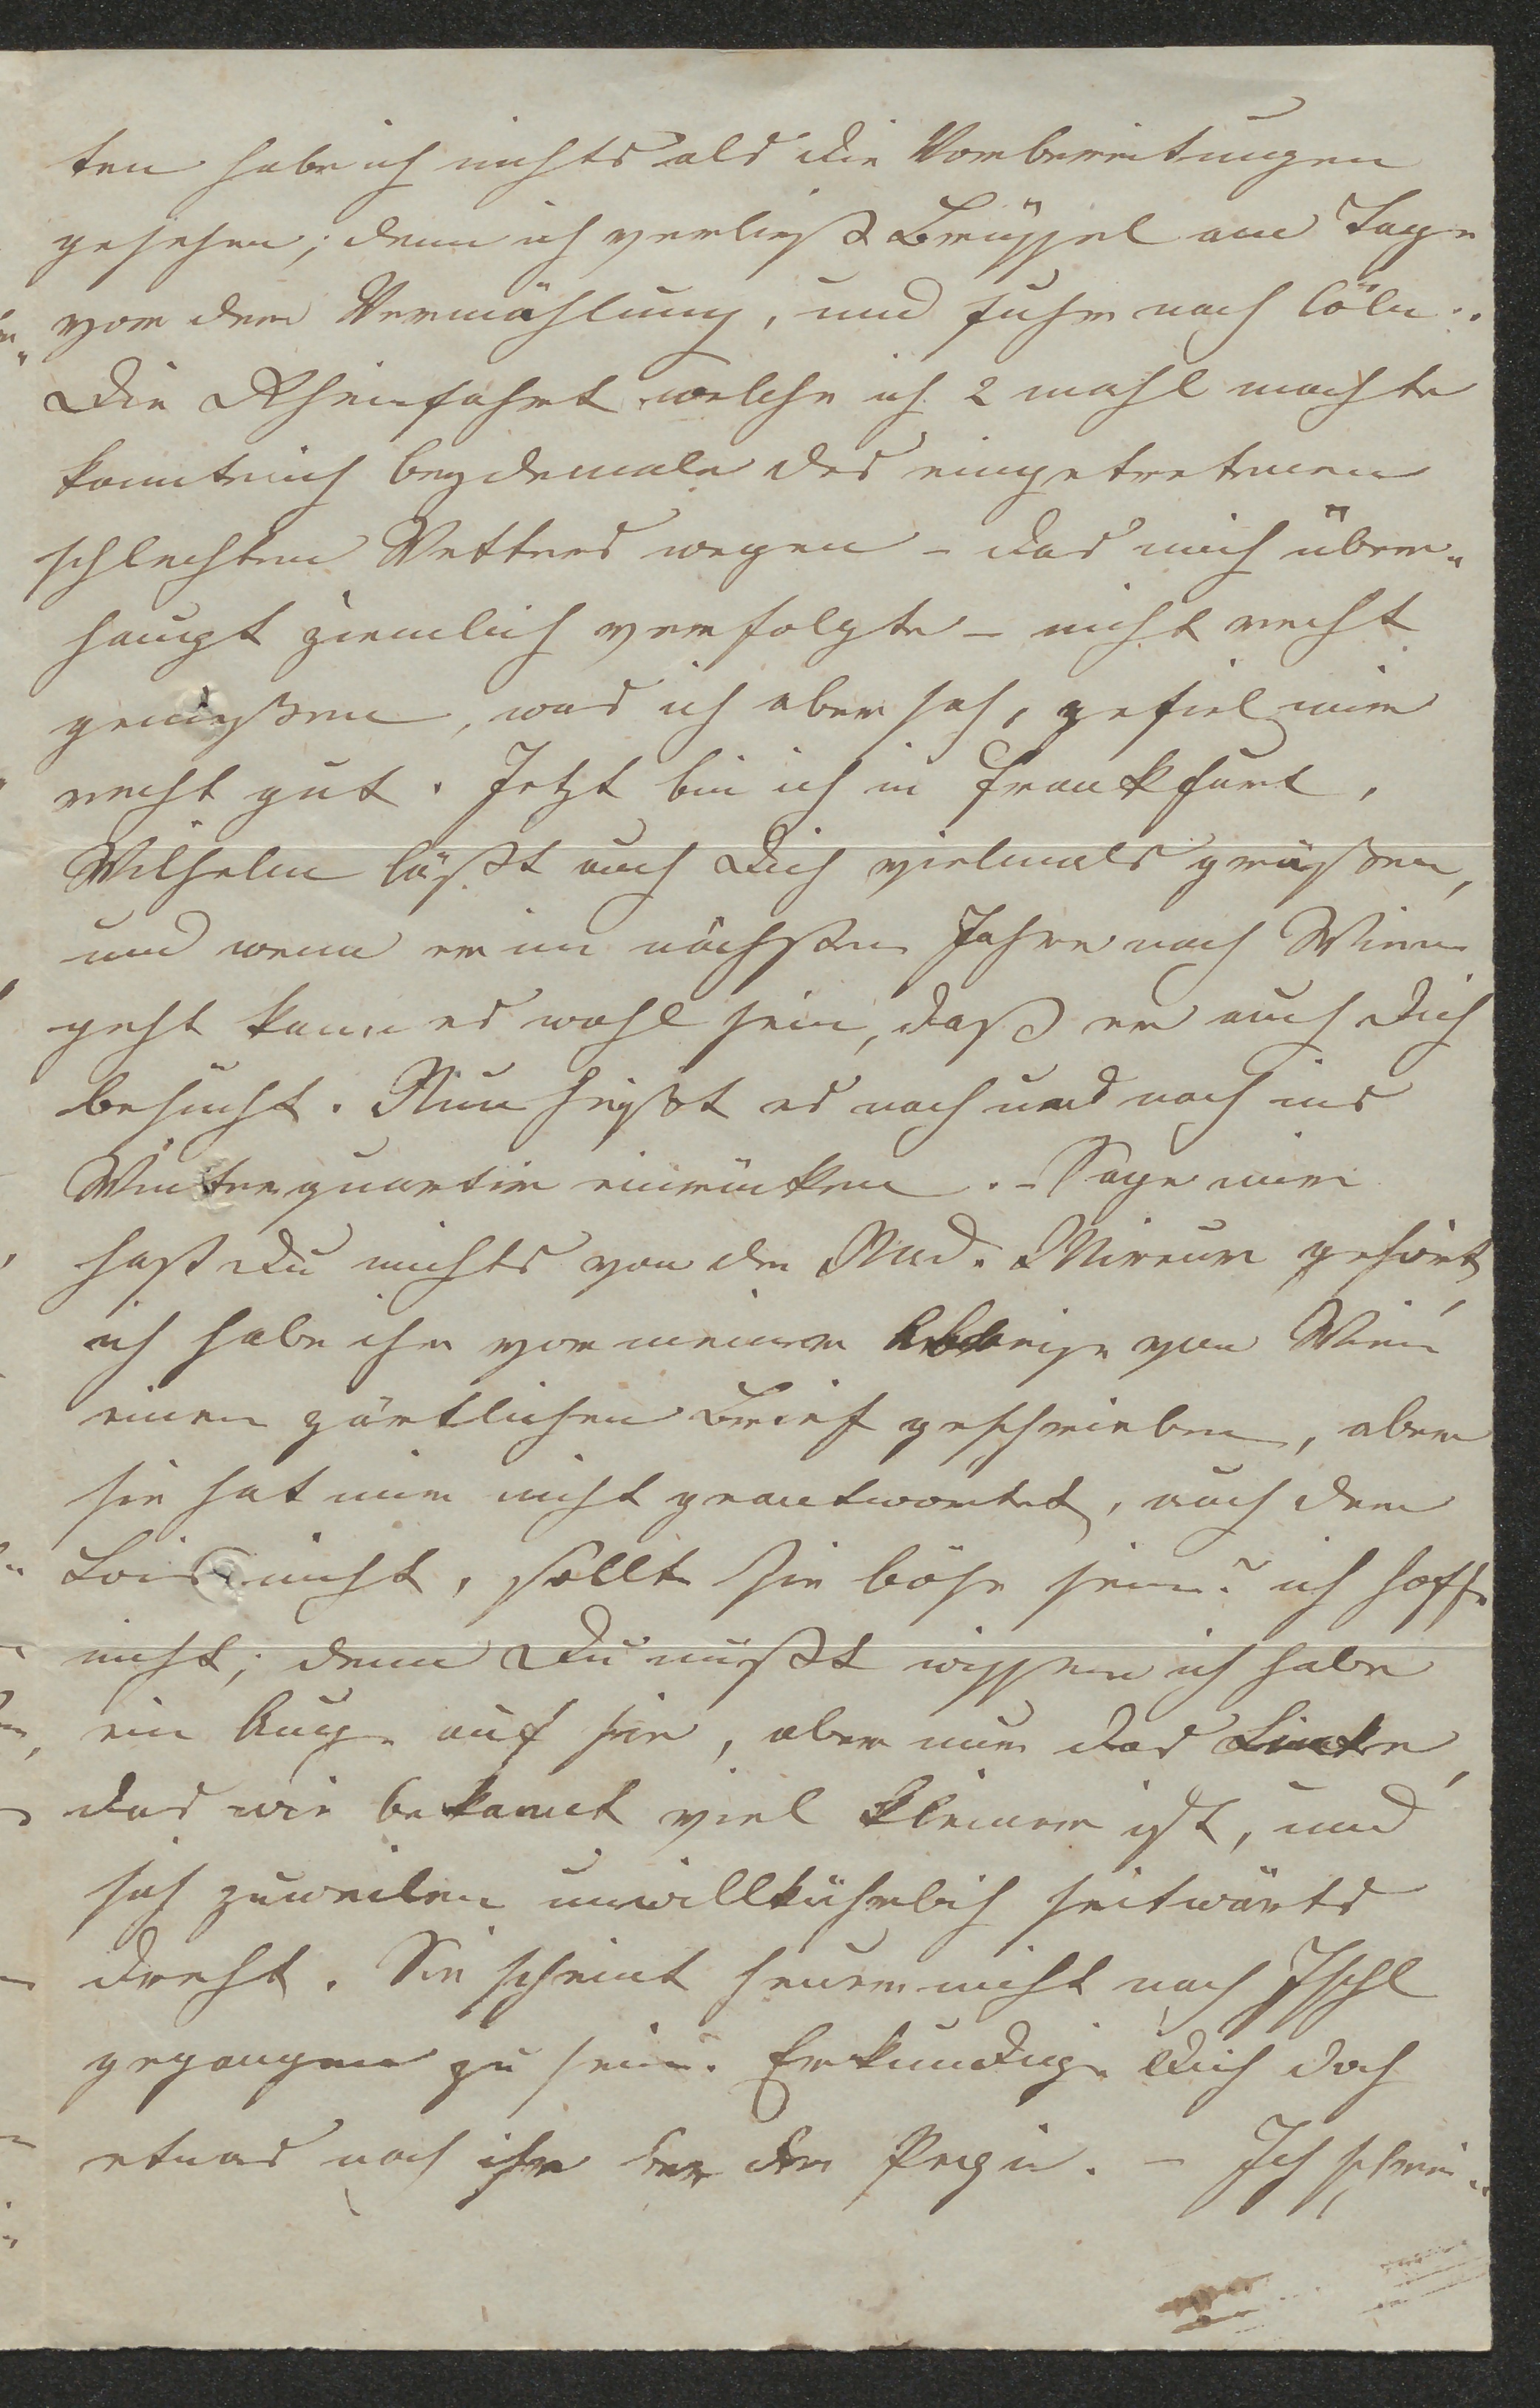 ten habe ich nichts als die Vorbereitungen
gesehen; denn ich verließ Brüssel am Tage
vor der Vermählung, und fuhr nach Cöln.
Die Rheinfahrt welche ich 2 mahl machte
konnte ich beydemale des eingetretenen
schlechten Wetters wegen – das mich über-
haupt ziemlich verfolgte – nicht recht
genießen, was ich aber sah, gefiel mir
recht gut. Jetzt bin ich in Frankfurt,
Wilhelm läßt auch Dich vielmals grüßen,
und wenn er im nächsten Jahre nach Wien
geht kann es wohl sein, daß er auch Dich
besucht. Nun heißt es nach und nach ins
Winterquartier einrücken. – Sage mir
hast Du nichts von der Mad. gehört,
ich habe ihr vor meiner Abreise von Wien
einen zärtlichen Brief geschrieben, aber
sie hat mir nicht geantwortet, auch dem
Lois nicht, sollte sie böse sein? ich hoffe
nicht; denn Du mußt wissen ich habe
ein Auge auf sie, aber nur das Linke,
das wie bekannt viel kleiner ist, und
sich zuweilen unwillkührlich seitwärts
dreht. Sie scheint heuer nicht nach Ischl
gegangen zu sein. Erkundige Dich doch
etwas nach ihr bey der . – Ich schrei-